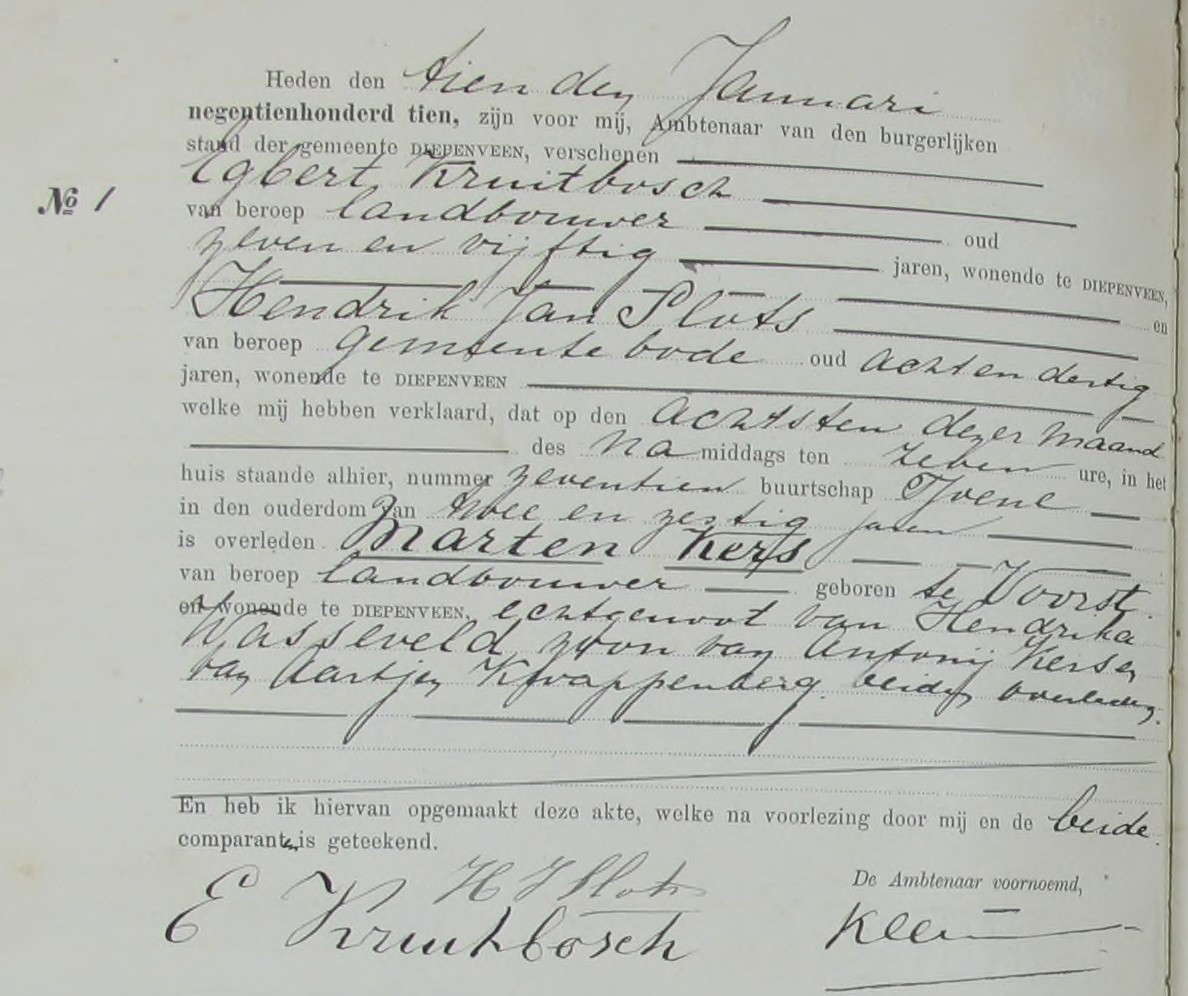 Heden den tienden Januari
negentienhonderd tien, zijn voor mij, Ambtenaar van den burgerlijken
stand der gemeente DIEPENVEEN, verschenen
Egbert Kruitbosch
No 1
van beroep landbouwer oud
zeven en vijftig jaren, wonende te DIEPENVEEN,
en
Hendrik Jan Slots
van beroep gemeentebode oud acht en dertig
jaren, wonende te DIEPENVEEN
welke mij hebben verklaard, dat op den achtsten dezer maand
des na middags ten zeven ure, in het
huis staande alhier, nummer zeventien buurtschap Tjoene
in den ouderdom van twee en zestig jaren
is overleden Marten Kers
van beroep landbouwer geboren te Voorst
en wonende te DIEPENVEEN, echtgenoot van Hendrika
Wasseveld, zoon van Antonij Kers en
van Aartjen Knappenberg beiden overleden.
En heb ik hiervan opgemaakt deze akte, welke na voorlezing door mij en de beide
comparanten is geteekend.
H J Slots
De Ambtenaar voornoemd,
E Kruitbosch